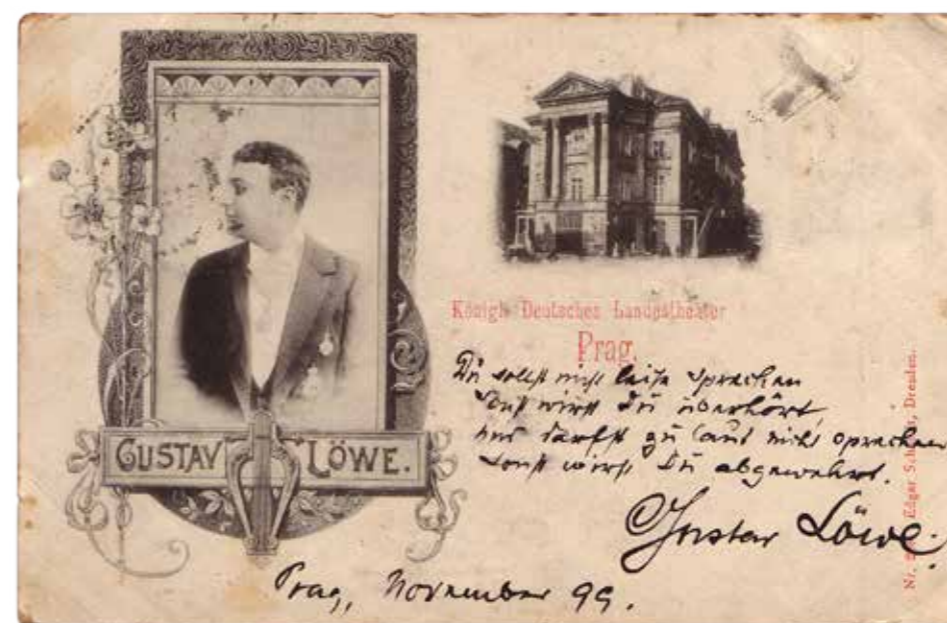 GUSTAV LÖWE.
Königl. Deutsches Landestheater
Prag.
Du sollst nicht leise sprechen
Sonst wirst Du überhört,
und darfst zu laut nicht sprechen
Sonst wirst Du abgewehrt.
Gustav Löwe.
Prag, November 99.
Nr. Edgar Dresden.